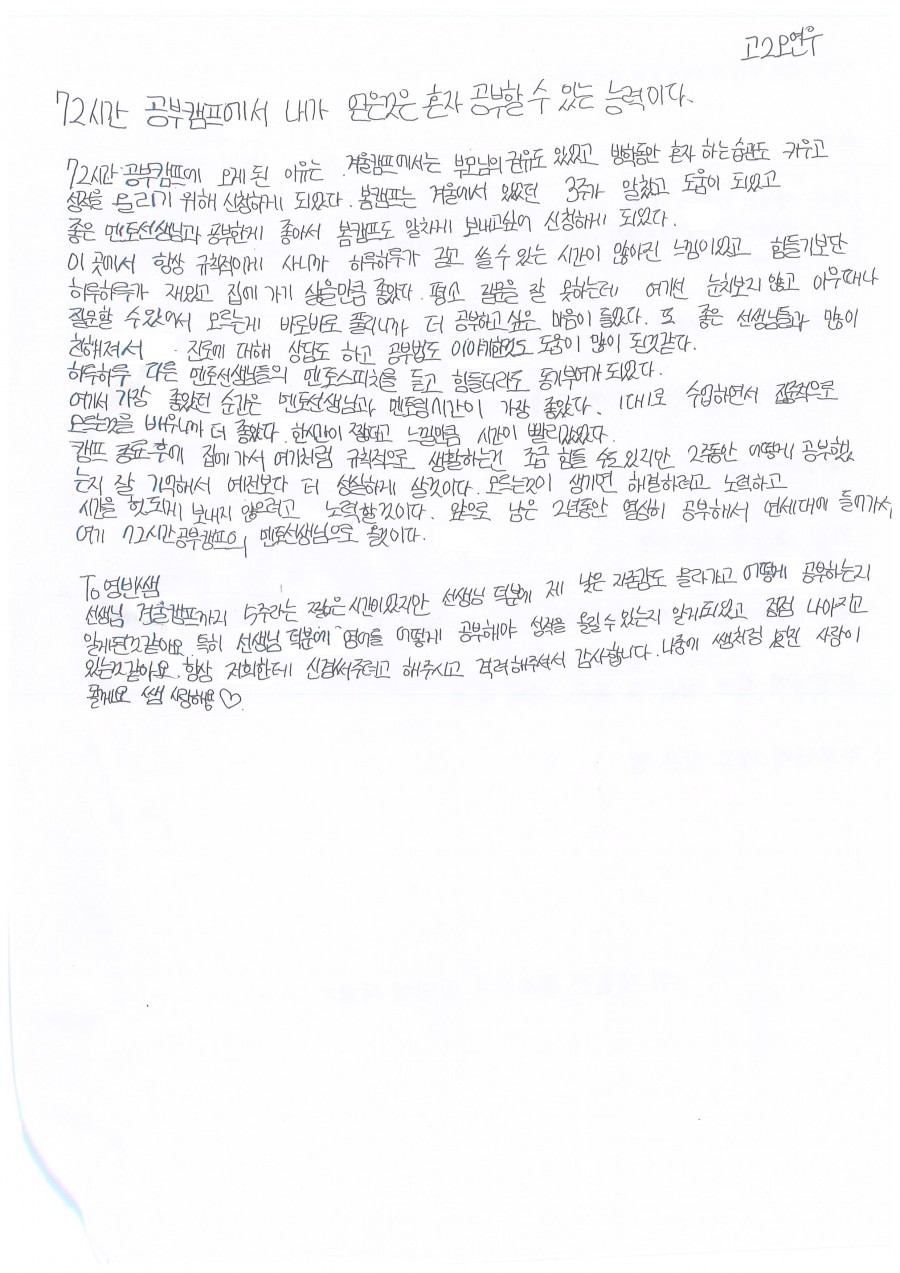 고2 오연우
72시간 공부캠프에서 내가 얻은것은 혼자 공부할 수 있는 능력이다.
72시간 공부캠프에 오게 된 이유는 겨울캠프에서는 부모님의 권유도 있었고 방학동안 혼자 하는 습관도 키우고
성적을 올리기 위해 신청하게 되었다. 봄캠프는 겨울에서 있었던 3주가 알찼고 도움이 되었고
좋은 멘토선생님과 공부한게 좋아서 봄캠프도 알차게 보내고싶어 신청하게 되었다.
이 곳에서 항상 규칙적이게 사니까 하루하루가 길고 쓸 수 있는 시간이 많아진 느낌이있고 힘들기보단
하루하루가 재밌고 집에 가기 싫을만큼 좋았다. 평소 질문을 잘 못하는데 여기선 눈치보지 않고 아무때나
질문할 수 있어서 모르는게 바로바로 풀리니까 더 공부하고 싶은 마음이 들었다. 또 좋은 선생님들과 많이
친해져서 진로에 대해 상담도 하고 공부법도 이야기한것도 도움이 많이 된것같다.
하루하루 다른 멘토선생님들의 멘토스피치를 듣고 힘들더라도 동기부여가 되었다.
여기서 가장 좋았던 순간은 멘토선생님과 멘토링시간이 가장 좋았다. 1대1로 수업하면서 집중적으로
모르는것을 배우니까 더 좋았다. 한시간이 짧다고 느낄만큼 시간이 빨리갔었다.
캠프 종료 후에 집에 가서 여기처럼 규칙적으로 생활하는건 조금 힘들 수도 있지만 2주동안 어떻게 공부했
는지 잘 기억해서 예전보다 더 성실하게 살것이다. 모르는것이 생기면 해결하려고 노력하고
시간을 헛되게 보내지 않으려고 노력할것이다. 앞으로 남은 2년동안 열심히 공부해서 연세대에 들어가서
여기 72시간공부캠프의 멘토선생님으로 올것이다.
To 영반쌤
선생님 겨울캠프까지 5주라는 짧은 시간이었지만 선생님 덕분에 제 낮은 자존감도 올라가고 어떻게 공부하는지
알게된것같아요. 특히 선생님 덕분에 영어를 어떻게 공부해야 성적을 올릴 수 있는지 알게되었고 점점 나아지고
있는것같아요. 항상 저희한테 신경써주려고 해주시고 격려해주셔서 감사합니다. 나중에 쌤처럼 멋진 사람이
될게요 쌤 사랑해용♡